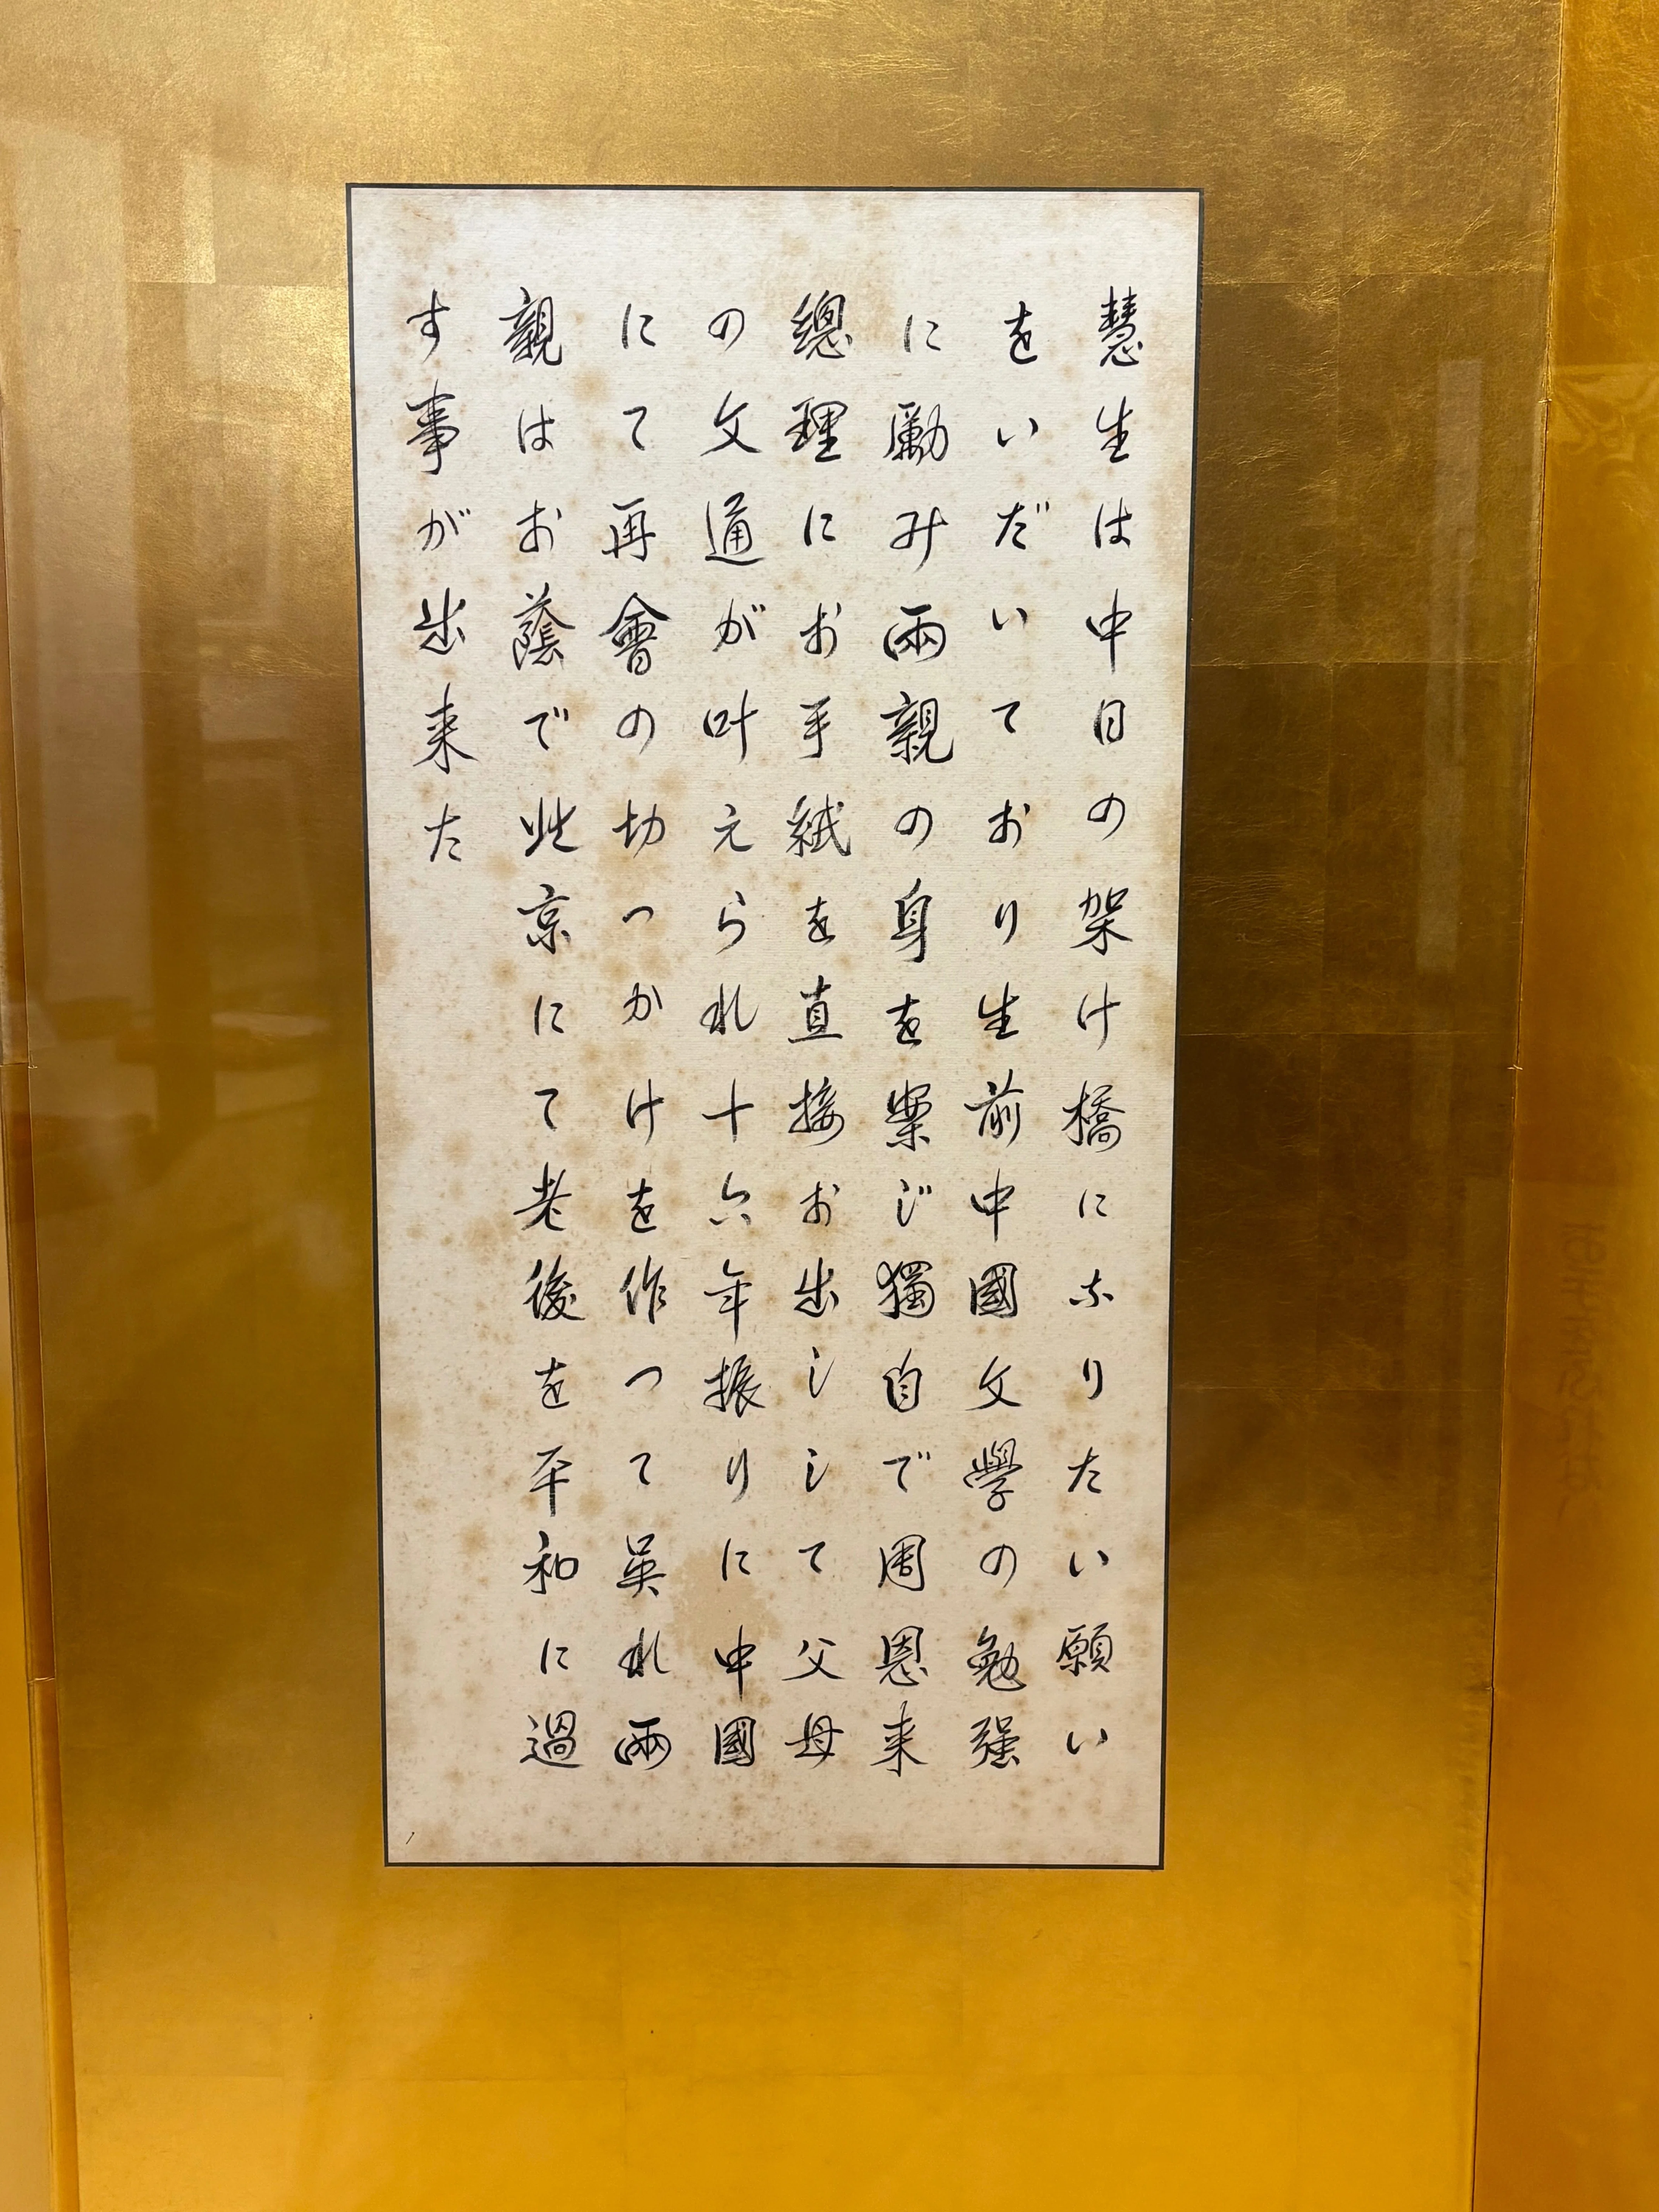 慧生は中日の架け橋になりたい願い
をいだいており生前中國文學の勉强
に勵み兩親の身を案じ獨自で周恩来
總理にお手紙を直接お出しして父母
の文通が叶えられ十六年振りに中國
にて再會の切っかけを作って呉れ兩
親はお蔭で北京にて老後を平和に過
す事が出来た